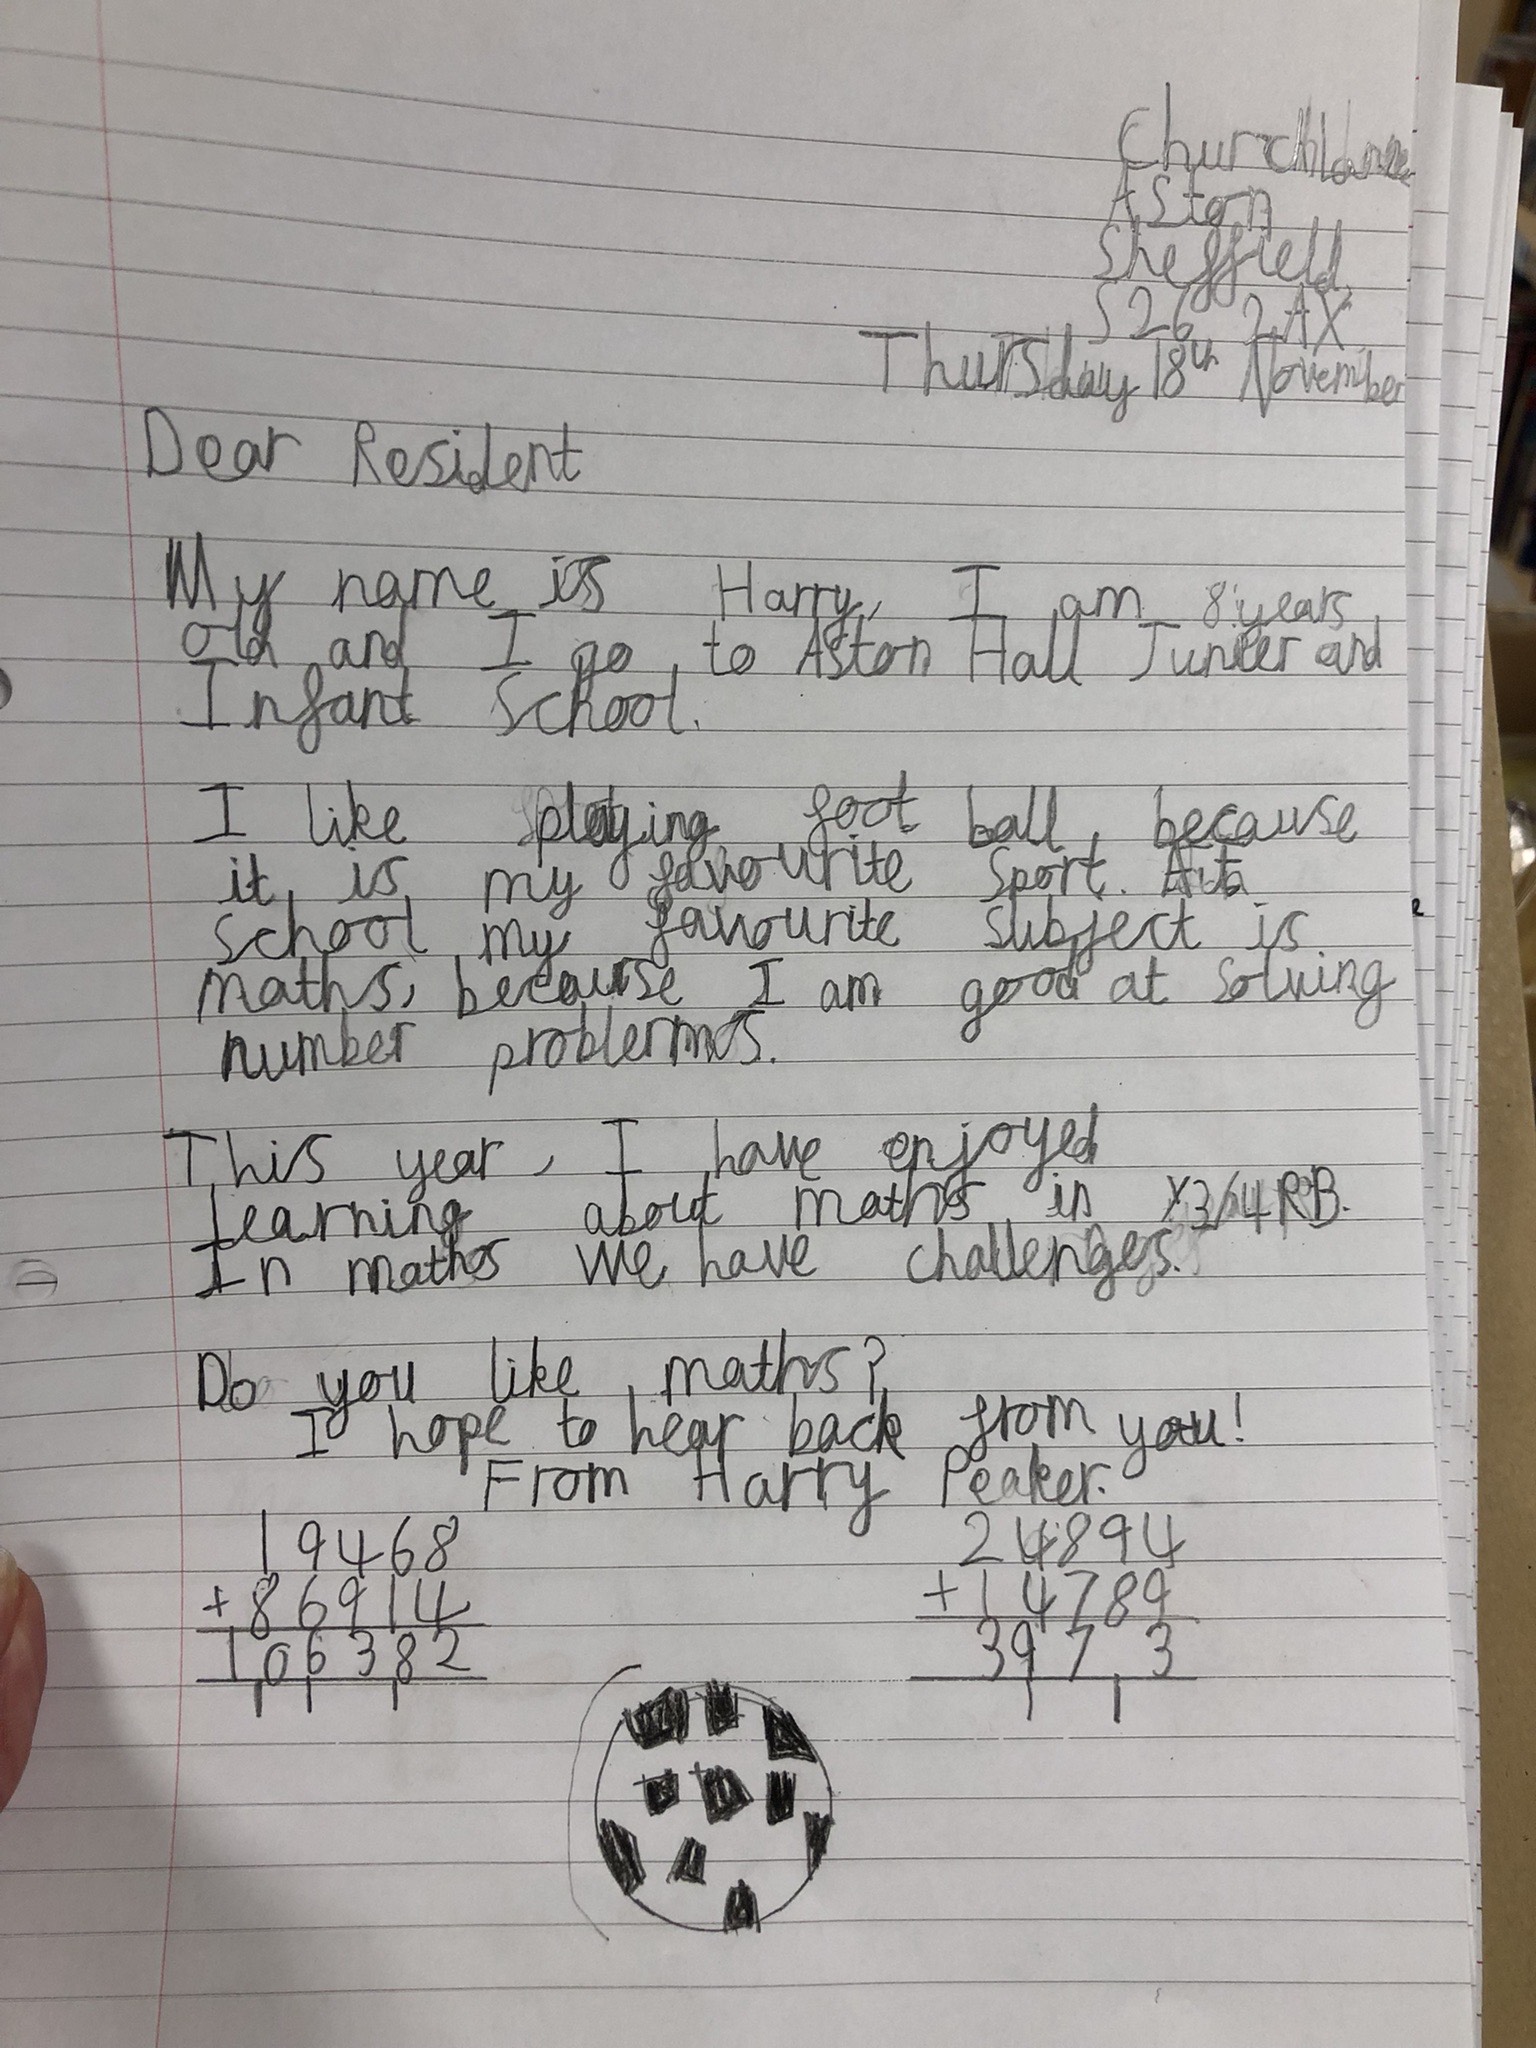 Church Lane
Aston
Sheffield
S26 2AX
Thursday 18th November
Dear Resident
My name is Harry, I am 8 years
old and I go to Aston Hall Junier and
Infant School.
I like playing foot ball, because
it is my favourite sport. At
school my favourite subject is
maths, because I am good at solving
number problems.
This year, I have enjoyed
learning about maths in Y3/4RB.
In maths we have challenges.
Do you like maths?
I hope to hear back from you!
From Harry Peaker.
19468
+86914
106382
1 1 1
24894
+14789
397 3
1 1